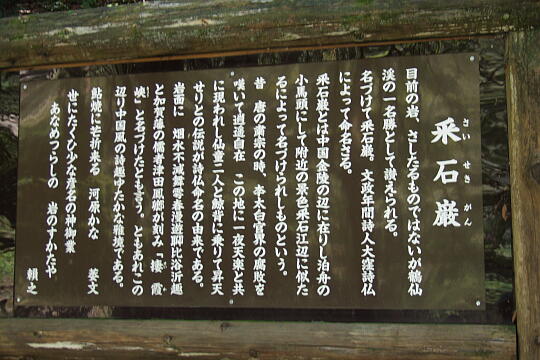 采石巌
さいせきがん
目前の岩、さしたるものではないが鶴仙
渓の一名勝として讃えられる。
名づけて采石巌。文政年間詩人大窪詩仏
によって命名さる。
采石巌とは中国金陵の辺に在りし泊舟の
小馬頭にして附近の景色采石江辺に似た
るによって名づけられしものという。
昔 唐の粛宗の時、李太白官界の腐敗を
嘆いて逍遥自在 この地に一夜天楽と共
に現われし仙童二人と鯨背に乗りて昇天
せりとの伝説が詩仏命名の由来である。
岩面に 烟水不減舞雩春漫遊聊比浴沂趣
と加賀藩の儒者津田鳳卿が刻み「棲霞
峡」と名づけたともいう。ともあれこの
辺り中国風の詩趣ゆたかな雅境である。
鮎焼に芒折来る 河鹿かな
世にたぐひ少な彦名の神御業
あなめつらしの 岩のすかたや 頼之